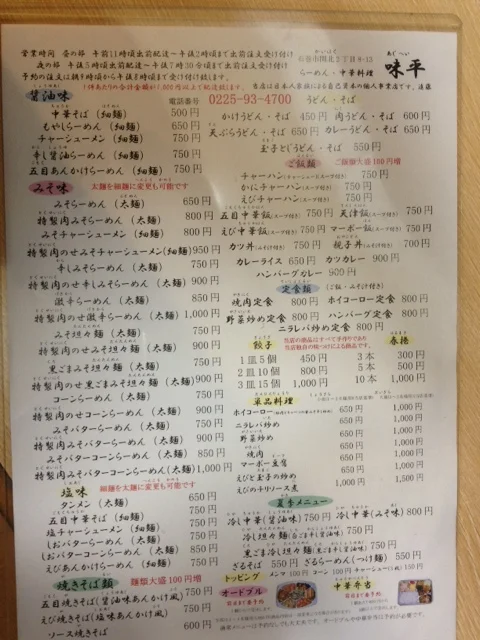 営業時間 昼の部 午前11時頃出前配達～午後2時まで出前注文受け付け
夜の部 午後5時頃出前配達～午後7時30分頃まで出前注文受け付け
石巻市開北3丁目
らーめん・中華料理 味平
電話番号 0225-93-4700
醤油味
中華そば(細麺) 500円
もやしらーめん(細麺) 650円
チャーシューメン(細麺) 750円
辛し醤油らーめん(細麺) 750円
五目あんかけらーめん(細麺) 750円
みそ味 太麺を細麺に変更も可能です
みそらーめん(太麺) 650円
特製肉みそらーめん(太麺) 800円
みそチャーシューメン(細麺) 800円
特製肉のせみそチャーシューメン(細麺) 950円
辛しみそらーめん(太麺) 750円
特製肉のせ辛しみそらーめん(太麺) 900円
激辛らーめん(太麺) 850円
特製肉のせ激辛らーめん(太麺) 1,000円
みそ坦々麺(太麺) 750円
特製肉のせみそ坦々麺(太麺) 900円
黒ごまみそ坦々麺(太麺) 750円
特製肉のせ黒ごまみそ坦々麺(太麺) 900円
コーンらーめん(太麺) 750円
特製肉のせコーンらーめん(太麺) 900円
みそバターらーめん(太麺) 750円
特製肉みそバターらーめん(太麺) 900円
みそバターコーンらーめん(太麺) 850円
特製肉みそバターコーンらーめん(太麺) 1,000円
塩味 細麺を太麺に変更も可能です
タンメン(太麺) 650円
五目中華そば(細麺) 750円
塩チャーシューメン(細麺) 750円
しおバターらーめん(細麺) 750円
しおバターコーンらーめん(細麺) 850円
えびあんかけらーめん(細麺) 750円
焼きそば類 麺類大盛100円増
五目焼きそば(醤油味あんかけ風) 750円
えび焼きそば(塩味あんかけ風) 750円
ソース焼きそば 600円
うどん・そば
かけうどん・そば 450円 肉うどん・そば 600円
天ぷらうどん・そば 650円 カレーうどん・そば 650円
玉子とじうどん・そば 550円
ご飯類 ご飯類大盛100円増
チャーハン 750円
かにチャーハン(スープ付き) 750円
えびチャーハン(スープ付き) 750円
五目中華飯(スープ付き) 750円 天津飯(スープ付き) 750円
えび中華飯(スープ付き) 750円 マーボー飯(スープ付き) 700円
カツ丼(みそ汁付き) 750円 親子丼(みそ汁付き) 700円
カレーライス 650円 カツカレー 900円
ハンバーグカレー 900円
定食類 (ご飯・みそ汁付き)
焼肉定食 800円 ホイコーロー定食 800円
野菜炒め定食 800円 ハンバーグ定食 800円
ニラレバ炒め定食 800円
餃子
1皿5個 450円
2皿10個 800円
3皿15個 1,000円
春捲
3本 300円
5本 500円
10本 1,000円
単品料理
ホイコーロー 650円 1,000円
ニラレバ炒め 650円 1,000円
野菜炒め 650円 1,000円
焼肉 650円 1,000円
マーボー豆腐 650円 1,000円
えびと玉子の炒め 650円 1,000円
えびのチリソース煮 1,000円 1,500円
夏季メニュー
冷し中華(醤油味) 750円 冷し中華(みそ味) 800円
冷し坦々麺 750円
黒ごま冷し坦々麺 750円
ざるそば 550円 ざるらーめん(つけ麺) 550円
トッピング メンマ 100円 コーン 100円
オードブル
中華弁当